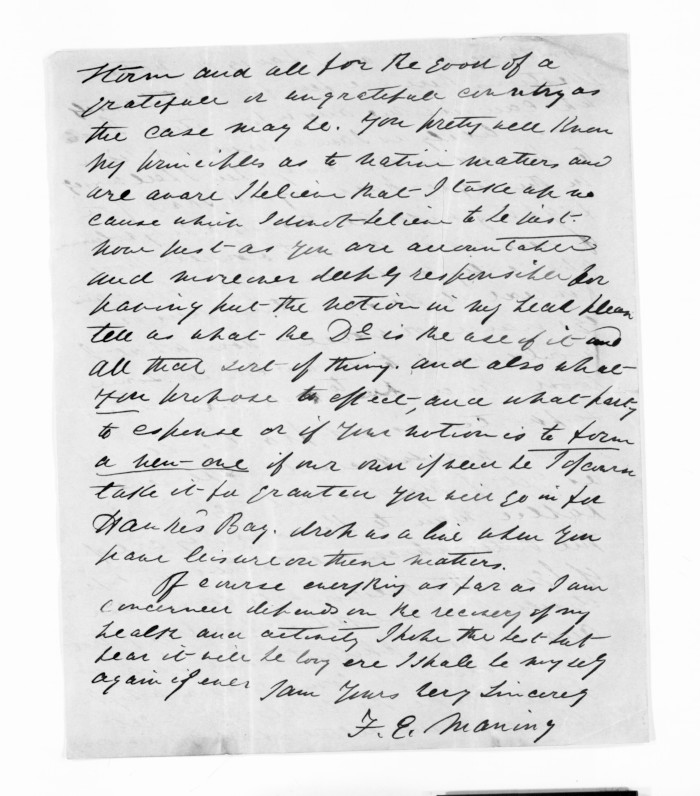 storm and all for the good of a
gratefull or ungratefull country as
the case may be. You prety well know
my principles as to native matters and
are aware I believe that I take up no
cause which I do not believe to be just.
now just as you are accountable
and moreover deeply responsible for
having put the notion in my head please
tell us what the D— is the use of it and
all that sort of thing. and also what
you propose to effect, and what party
to espouse or if your notion is to form
a new one if our own if need be I of course
take it for granted you will go in for
Hawkes Bay. drop us a line when you
have leisure on these matters.
Of course everything as far as I am
concerned depends on the recovery of my
health and activity I hope the best but
fear it will be long ere I shall be myself
again if ever I am Yours very sincerely
F. E. Maning